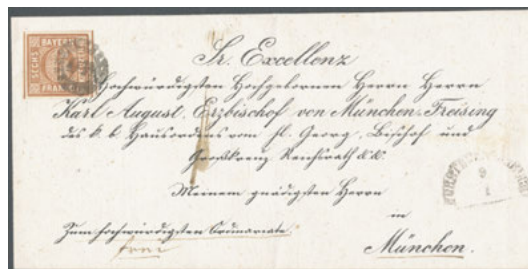 BAYERN
SECHS
FRANCO
Sr. Excellenz
Hochwürdigsten Hochgebornen Herrn Herrn
Karl August, Erzbischof von München-Freising
des k. b. Hausordens vom hl. Georg, Bischof und
Großkreuz Reichsrath &c.
Meinem gnädigsten Herrn
in
Zum hochwürdigsten Ordinariate.
frei
München.
9
1